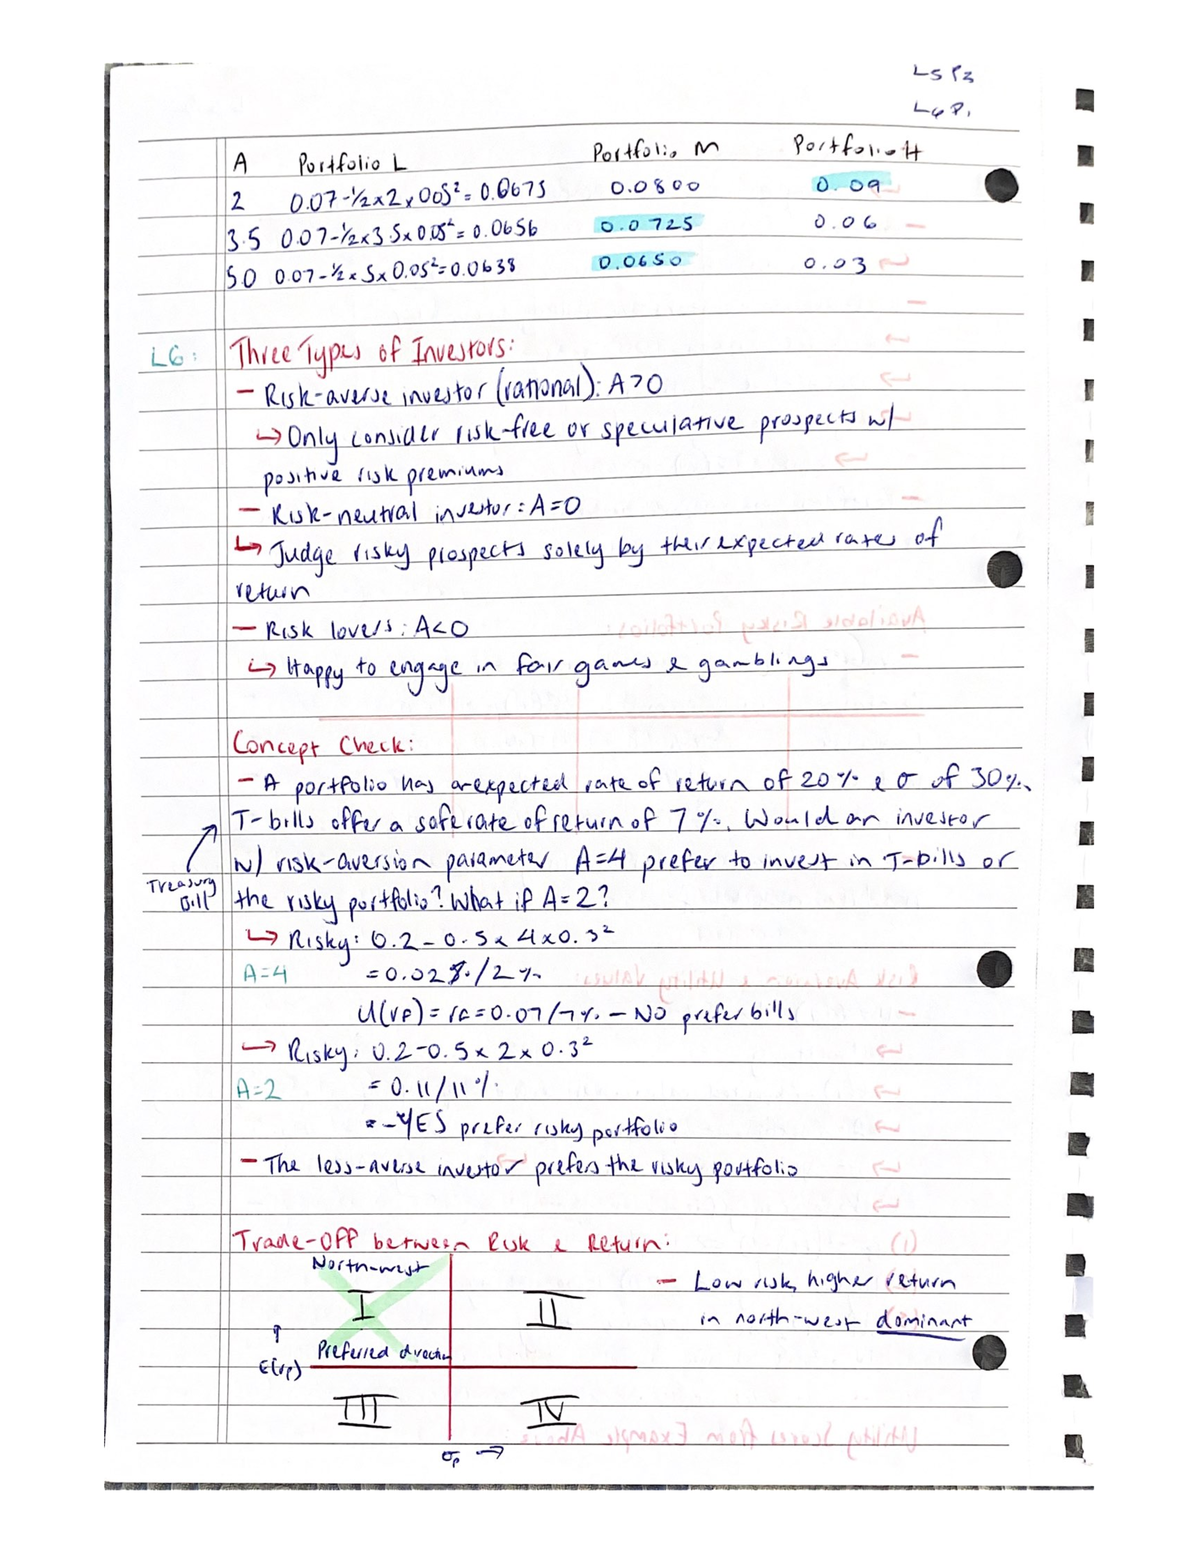 L5 P3
L6 P1
A Portfolio L Portfolio M Portfolio H
2 0.07-½x2x0.05²=0.0675 0.0800 0.09
3.5 0.07-½x3.5x0.05²=0.0656 0.0725 0.06
5.0 0.07-½x5x0.05²=0.0638 0.0650 0.03
L6: Three Types of Investors:
- Risk-averse investor (rational): A>0
↳ Only consider risk-free or speculative prospects w/
positive risk premiums
- Risk-neutral investor: A=0
↳ Judge risky prospects solely by their expected rates of
return
- Risk lovers: A<0
↳ Happy to engage in fair games & gamblings
Concept Check:
- A portfolio has an expected rate of return of 20% & σ of 30%.
T-bills offer a safe rate of return of 7%. Would an investor
w/ risk-aversion parameter A=4 prefer to invest in T-bills or
Treasury
Bill
the risky portfolio? What if A=2?
↳ Risky: 0.2-0.5x4x0.3²
A=4 =0.02/2%
U(rp)=rf=0.07/7% - NO prefer bills
↳ Risky: 0.2-0.5x2x0.3²
A=2 =0.11/11%
- YES prefer risky portfolio
- The less-averse investor prefers the risky portfolio
Trade-Off between Risk & Return:
North-west
- Low risk, higher return
I II
in north-west dominant
↑
Preferred direction
E(rp)
III IV
σp →